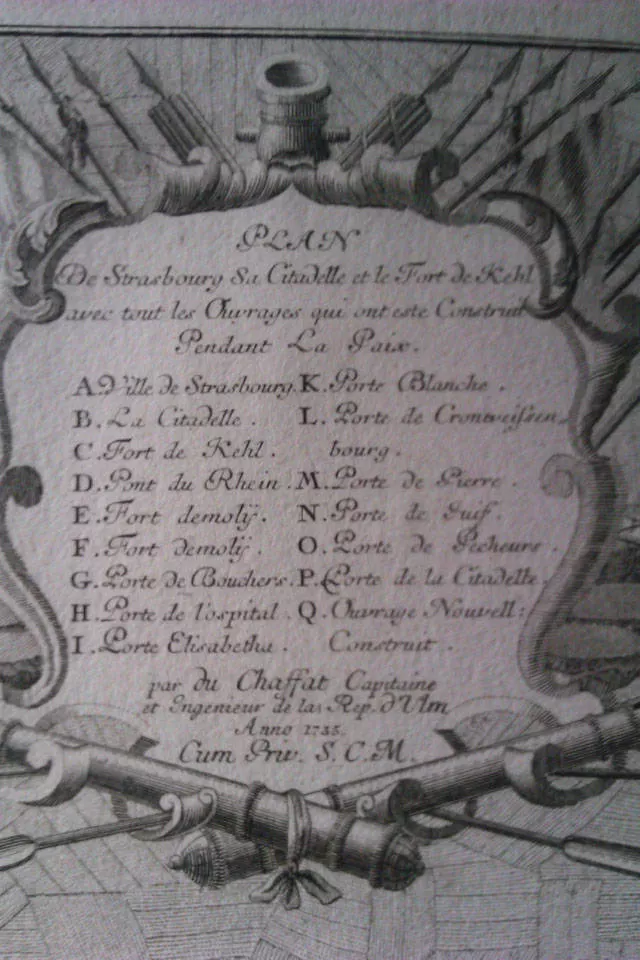 PLAN
De Strasbourg Sa Citadelle et le Fort de Kehl
avec tout les Ouvrages qui ont este Construit
Pendant La Paix.
A. Ville de Strasbourg.
B. La Citadelle.
C. Fort de Kehl.
D. Pont du Rhein.
E. Fort demolÿ.
F. Fort demolÿ.
G. Porte de Bouchers.
H. Porte de l'ospital.
I. Porte Elisabetha.
K. Porte Blanche.
L. Porte de Cronweissen-
bourg.
M. Porte de Pierre.
N. Porte de Juif.
O. Porte de Pecheurs.
P. Porte de la Citadelle.
Q. Ouvrage Nouvell:
Construit.
par du Chaffat Capitaine
et Ingenieur de la Rep. d'Ulm
Anno 1735.
Cum Priv. S. C. M.